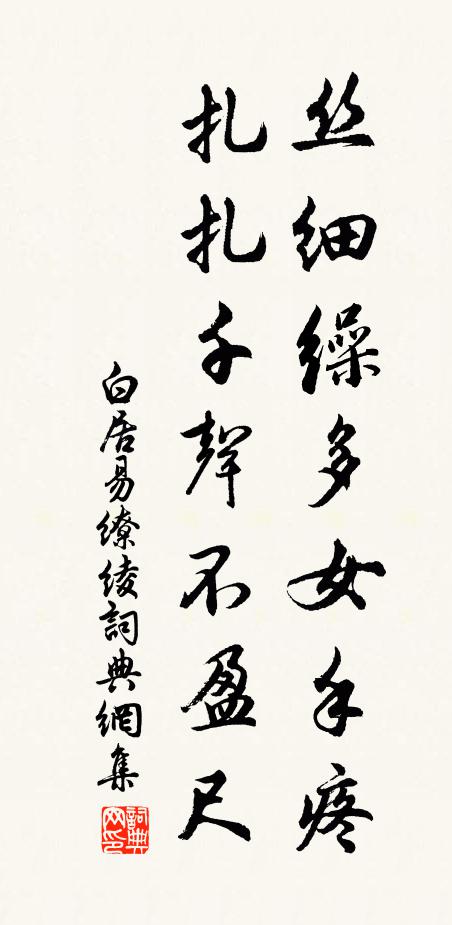 丝细缲多女手疼
扎扎千聲不盈尺
白居易繚綾詞典網集
詞典网印